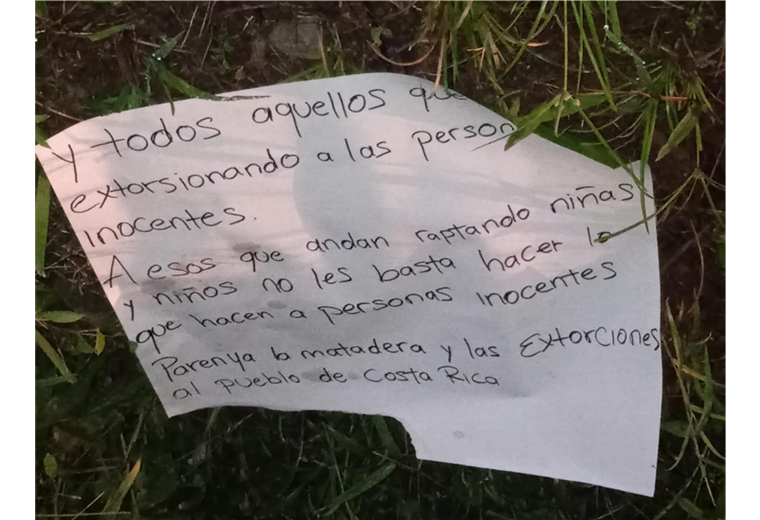 y todos aquellos que
extorsionando a las person
inocentes.
A esos que andan raptando niñas
y niños no les basta hacer lo
que hacen a personas inocentes
Parenya la matadera y las Extorciones
al pueblo de Costa Rica